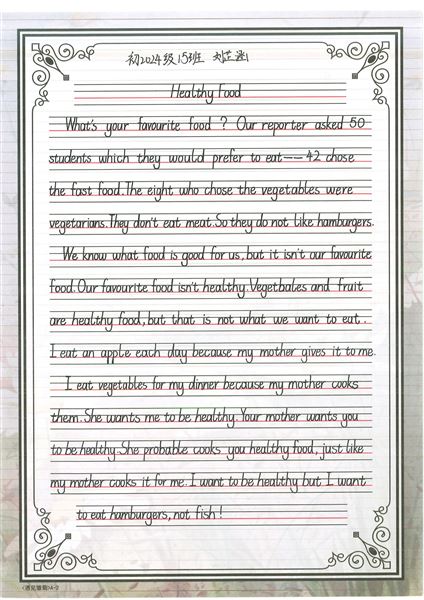 初2024级15班 刘芷涵
Healthy Food
What's your favourite food ? Our reporter asked 50
students which they would prefer to eat——42 chose
the fast food.The eight who chose the vegetables were
vegetarians.They don't eat meat.So they do not like hamburgers.
We know what food is good for us,but it isn't our favourite
food.Our favourite food isn't healthy.Vegetbales and fruit
are healthy food,but that is not what we want to eat..
I eat an apple each day because my mother gives it to me.
I eat vegetables for my dinner because my mother cooks
them.She wants me to be healthy.Your mother wants you
to be healthy.She probable cooks you healthy food, just like
my mother cooks it for me.I want to be healthy but I want
to eat hamburgers,not fish!